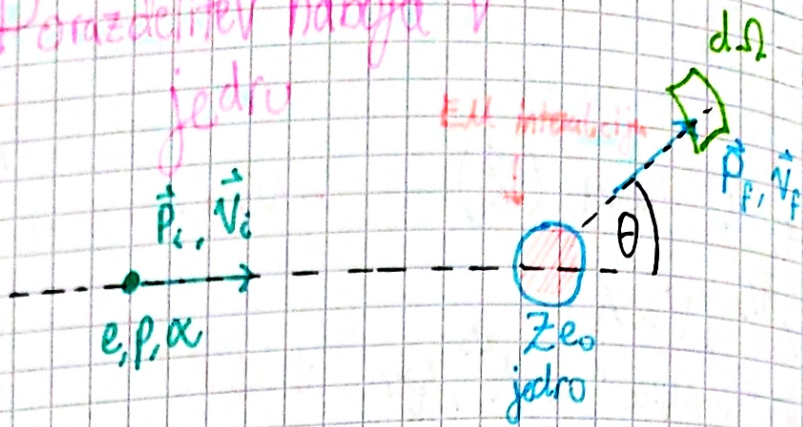 Porazdelitev naboja v
jedru
dΩ
EM interakcija
p⃗ᵢ, v⃗ᵢ
p⃗_f, v⃗_f
θ
e, p, α
Ze₀
jedro